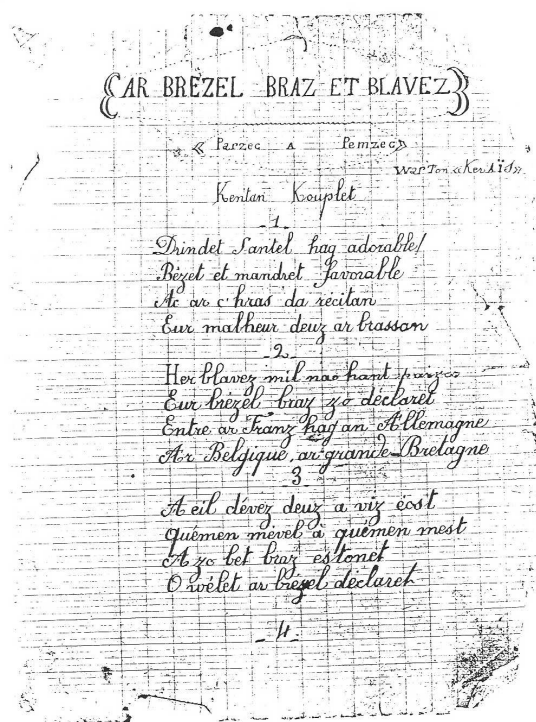 AR BRÉZEL BRAZ ET BLAVEZ
« Parzec A Pemzec »
War Ton « Ker Is »
Kentan Kouplet
_1_
Drindet Santel hag adorable!
Bézet et mandret favorable
Ac ar c'hras da récitan
Eur malheur deuz ar brassan
_2_
Her blavez mil nao hant parzec
Eur brézel braz zo déclaret
Entre ar Franz hag an Allemagne
Ar Belgique, ar grande-Bretagne
3
A eil dévez deuz a viz éost
Quémen mével à quémen mest
A zo bet braz estonet
O wélet ar brézel déclaret
_4_